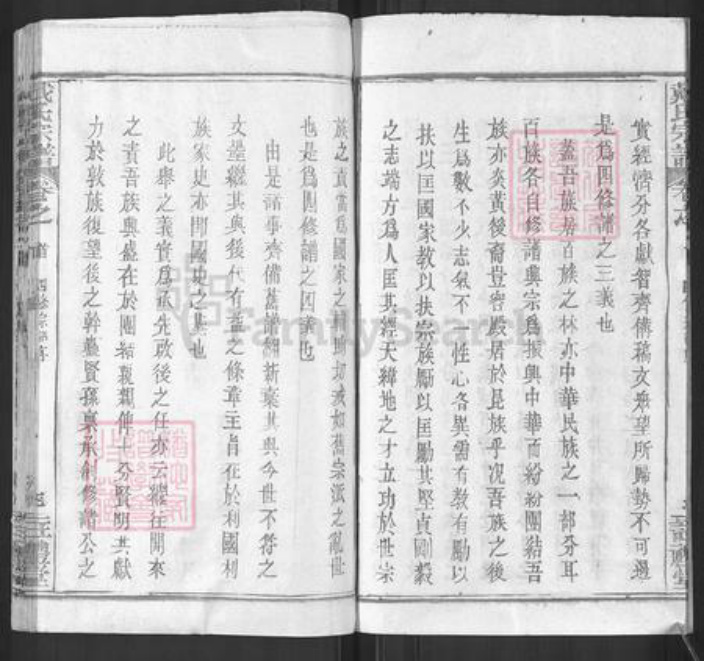 實經濟分各獻智齊傳稿文眾望所歸勢不可遏
是爲四修譜之三義也
蓋吾族居百族之林亦中華民族之一部分耳
百族各自修譜興宗爲振興中華而紛紛團結吾
族亦炎黃後裔豈容殿居於昆族乎况吾族之後
生爲數不少志氣不一性心各異需有教有勵以
扶以匡國家教以扶宗族勵以匡勵其堅貞剛毅
之志端方爲人匡其經天緯地之才立功於世宗
族之責當爲國家之輔助切波如舊宗派之亂世
也是爲四修譜之四義也
由是諸事齊備舊譜翻新棄其與今世不符之
文墨繼其與後代有益之條章主旨在於利國利
族家史亦開國史之基也
此舉之義實爲承先啟後之任亦云繼往開來
之責吾族興盛在於團結親親俾十分賢明共獻
力於敦族復望後之幹蠱賢孫稟承創修諸公之
戴氏宗譜
卷之
首
FamilySearch